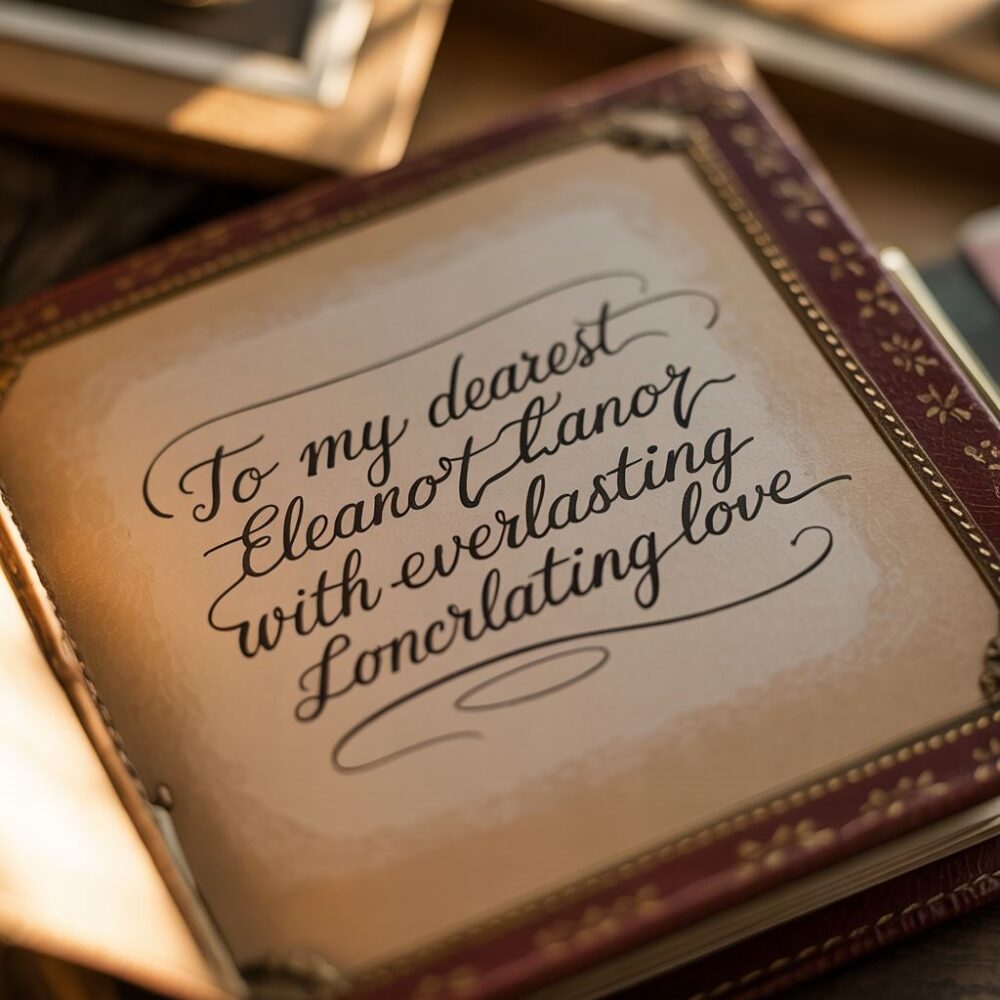 To my dearest
Eleanot Lanor
with everlasting
Loncrlating love